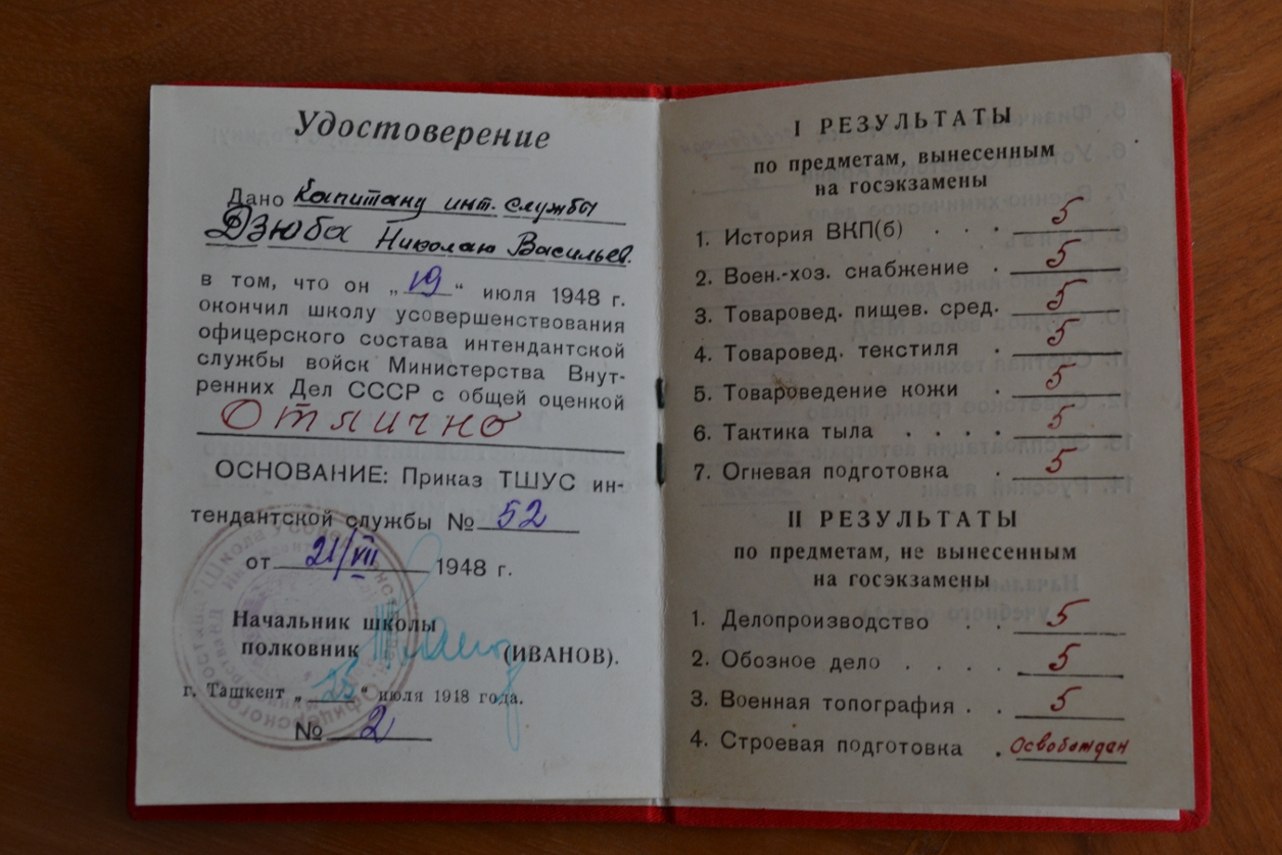 Удостоверение
Дано Капитану инт. службы
Дзюба Николаю Васильев.
в том, что он „19“ июля 1948 г.
окончил школу усовершенствования
офицерского состава интендантской
службы войск Министерства Внут-
ренних Дел СССР с общей оценкой
Отлично
ОСНОВАНИЕ: Приказ ТШУС ин-
тендантской службы № 52
от 21/VII 1948 г.
Начальник школы
полковник (ИВАНОВ).
г. Ташкент „25“ июля 1948 года.
№ 2
I РЕЗУЛЬТАТЫ
по предметам, вынесенным
на госэкзамены
1. История ВКП(б) . . . 5
2. Воен.-хоз. снабжение . 5
3. Товаровед. пищев. сред. 5
4. Товаровед. текстиля . 5
5. Товароведение кожи . 5
6. Тактика тыла . . . . 5
7. Огневая подготовка . 5
II РЕЗУЛЬТАТЫ
по предметам, не вынесенным
на госэкзамены
1. Делопроизводство . . 5
2. Обозное дело . . . . 5
3. Военная топография . . 5
4. Строевая подготовка . Освобожден